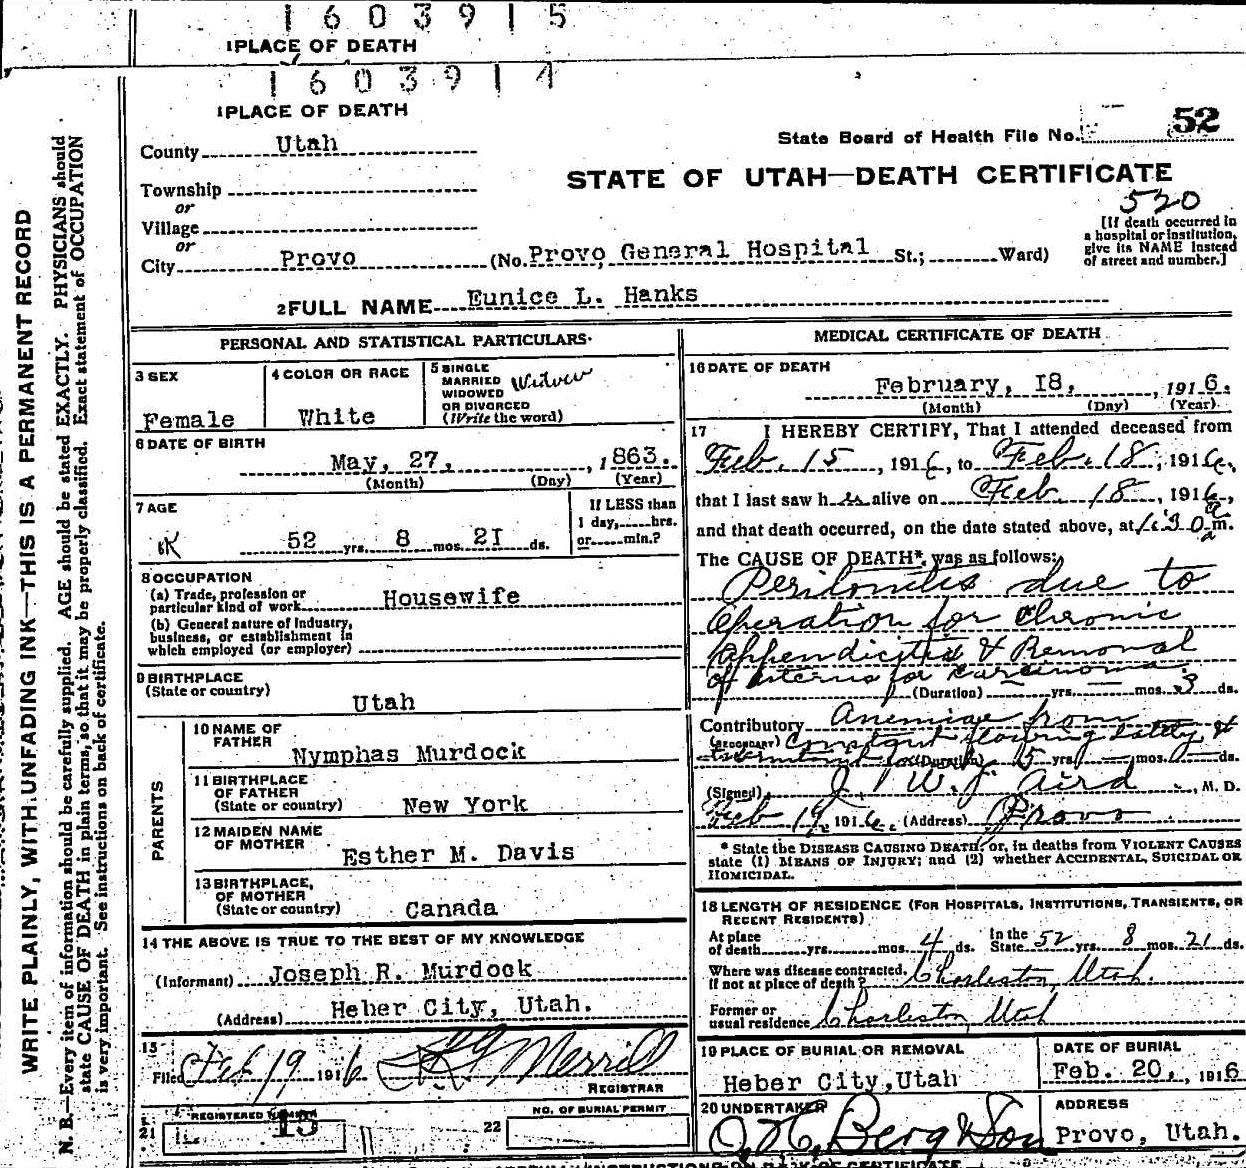 1603915
1 PLACE OF DEATH
1603914
1 PLACE OF DEATH
State Board of Health File No. 52
County Utah
STATE OF UTAH—DEATH CERTIFICATE
520
Township
or
Village
or
City Provo (No. Provo General Hospital St.; Ward)
[If death occurred in
a hospital or institution,
give its NAME instead
of street and number.]
2 FULL NAME Eunice L. Hanks
PERSONAL AND STATISTICAL PARTICULARS
3 SEX
Female
4 COLOR OR RACE
White
5 SINGLE
MARRIED
WIDOWED
OR DIVORCED
(Write the word)
Widow
6 DATE OF BIRTH
May, 27, , 1863.
(Month) (Day) (Year)
7 AGE
52 yrs. 8 mos. 21 ds.
If LESS than
1 day, hrs.
or min.?
8 OCCUPATION
(a) Trade, profession or
particular kind of work Housewife
(b) General nature of Industry,
business, or establishment in
which employed (or employer)
9 BIRTHPLACE
(State or country)
Utah
PARENTS
10 NAME OF
FATHER
Nymphas Murdock
11 BIRTHPLACE
OF FATHER
(State or country) New York
12 MAIDEN NAME
OF MOTHER
Esther M. Davis
13 BIRTHPLACE,
OF MOTHER
(State or country) Canada
14 THE ABOVE IS TRUE TO THE BEST OF MY KNOWLEDGE
(Informant) Joseph R. Murdock
(Address) Heber City, Utah.
15
Filed Feb 19 1916 Merrill
REGISTRAR
REGISTERED NUMBER
21 13
22 NO. OF BURIAL PERMIT
MEDICAL CERTIFICATE OF DEATH
16 DATE OF DEATH
February, 18, , 1916.
(Month) (Day) (Year)
17 I HEREBY CERTIFY, That I attended deceased from
Feb. 15, 1916, to Feb. 18, 1916,
that I last saw her alive on Feb. 18, 1916,
and that death occurred, on the date stated above, at 1:30 a m.
The CAUSE OF DEATH* was as follows:
Peritonitis due to
Operation for Chronic
Appendicitis & Removal
of uterus for Carcinoma.
(Duration) yrs. mos. 3 ds.
Contributory Anemiae from
(SECONDARY) Constant flowing &
(Duration) 5 yrs. mos. ds.
(Signed) J. W. Aird, M. D.
Feb 19, 1916. (Address) Provo
* State the DISEASE CAUSING DEATH, or, in deaths from VIOLENT CAUSES
state (1) MEANS OF INJURY; and (2) whether ACCIDENTAL, SUICIDAL OR
HOMICIDAL.
18 LENGTH OF RESIDENCE (FOR HOSPITALS, INSTITUTIONS, TRANSIENTS, OR
RECENT RESIDENTS)
At place
of death yrs. mos. 4 ds. In the
State 52 yrs. 8 mos. 21 ds.
Where was disease contracted,
if not at place of death? Charleston, Utah.
Former or
usual residence Charleston, Utah
19 PLACE OF BURIAL OR REMOVAL
Heber City, Utah
DATE OF BURIAL
Feb. 20, , 1916
20 UNDERTAKER
O. H. Berg & Son
ADDRESS
Provo, Utah.
WRITE PLAINLY, WITH UNFADING INK—THIS IS A PERMANENT RECORD
N. B.—Every item of information should be carefully supplied. AGE should be stated EXACTLY. PHYSICIANS should
state CAUSE OF DEATH in plain terms, so that it may be properly classified. Exact statement of OCCUPATION
is very important. See instructions on back of certificate.